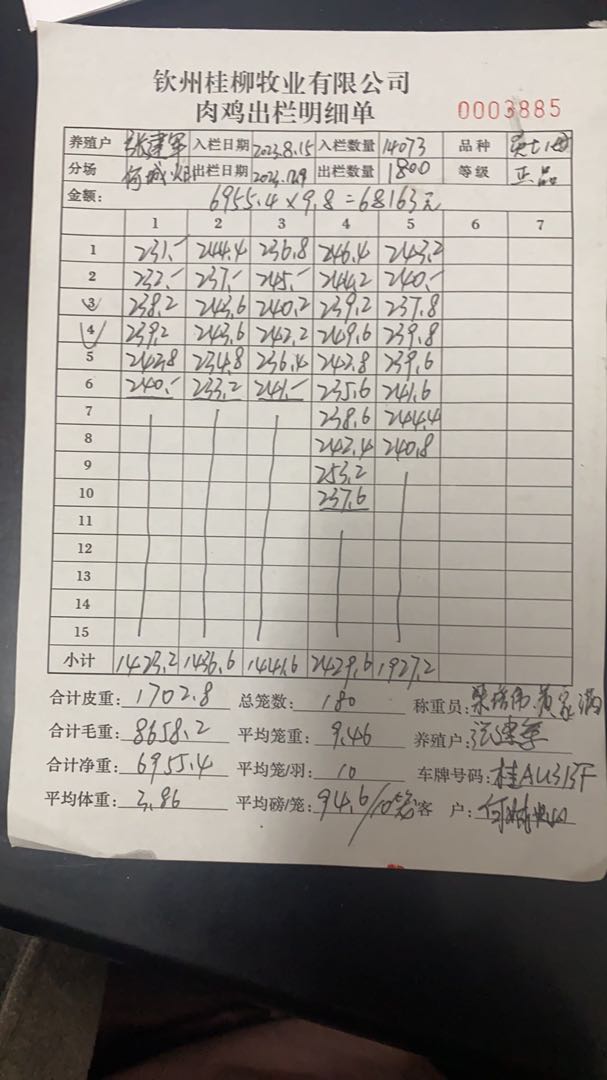 钦州桂柳牧业有限公司
肉鸡出栏明细单
0003885
养殖户 张建军 入栏日期 2023.8.15 入栏数量 14073 品种
分场 出栏日期 出栏数量 1800 等级 正品
金额: 6955.4×9.8=68163元
1 2 3 4 5 6 7
1 231.- 244.4 236.8 246.4 243.2
2 232.- 237.- 245.- 244.2 240.-
3 238.2 243.6 240.2 239.2 237.8
4 239.2 243.6 242.2 249.6 239.8
5 242.8 234.8 236.4 242.8 239.6
6 240.- 233.2 241.- 235.6 241.6
7 238.6 244.4
8 242.4 240.8
9 253.2
10 237.6
11
12
13
14
15
小计 1423.2 1436.6 1441.6 2429.6 1927.2
合计皮重: 1702.8 总笼数: 180 称重员:
合计毛重: 8658.2 平均笼重: 9.46 养殖户: 张建军
合计净重: 6955.4 平均笼/羽: 10 车牌号码: 桂AU313F
平均体重: 3.86 平均磅/笼: 94.6/10 客 户: